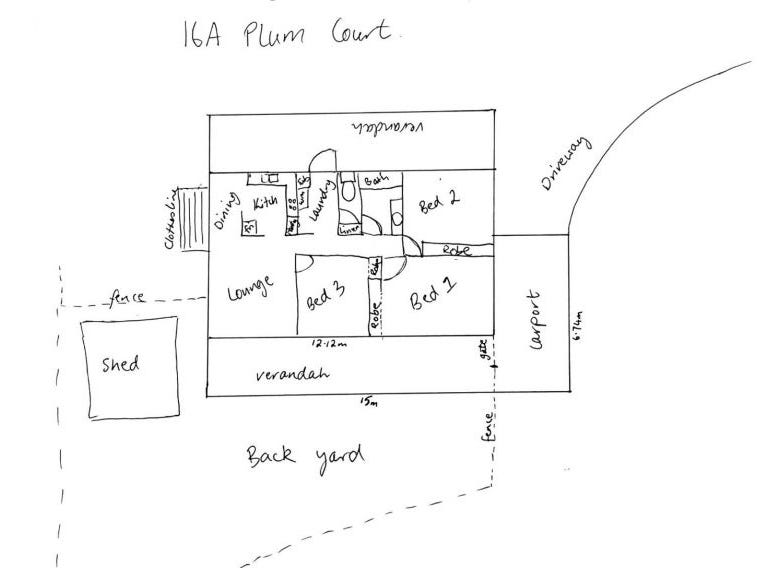 16A Plum Court.
verandah
Driveway
Bath
Laundry
Kitch
Dining
Bed 2
Clothesline
Linen
Robe
Lounge
Bed 3
Robe
Bed 1
fence
Carport
6.74m
12.12m
gate
Shed
verandah
15m
fence
Back yard